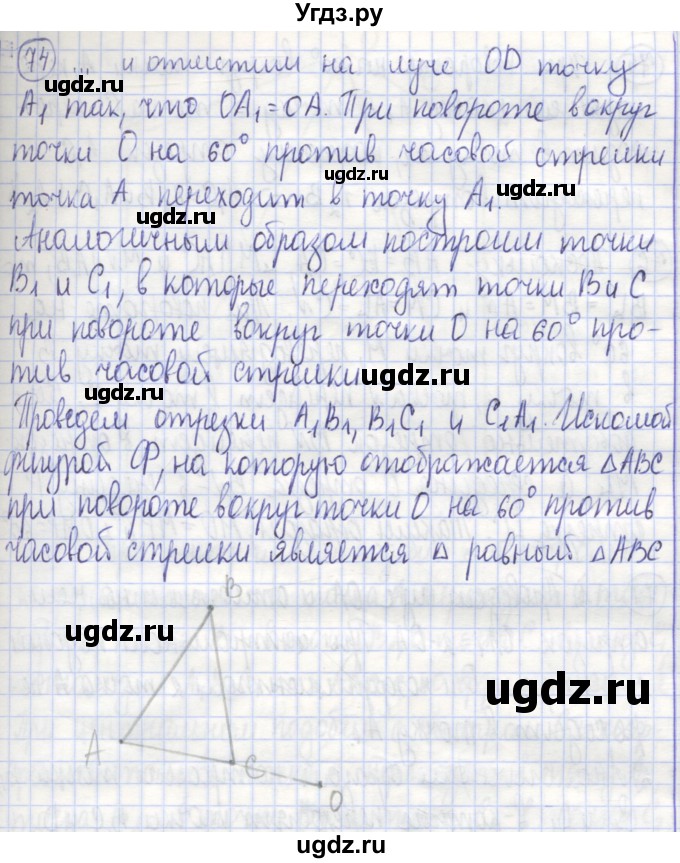 Угдз.ру
74 ... и отметим на луче OD точку
A₁ так, что OA₁=OA. При повороте вокруг
точки O на 60° против часовой стрелки
точка A переходит в точку A₁.
Аналогичным образом построим точки
B₁ и C₁, в которые переходят точки B и C
при повороте вокруг точки O на 60° про-
тив часовой стрелки
Проведем отрезки A₁B₁, B₁C₁ и C₁A₁. Искомой
фигурой Ф, на которую отображается △ABC
при повороте вокруг точки O на 60° против
часовой стрелки является △ равный △ABC
B
A
C
O
ugdz.ru
ugdz.ru
ugdz.ru
ugdz.ru
ugdz.ru
ugdz.ru
ugdz.ru
ugdz.ru
ugdz.ru
Угдз.ру